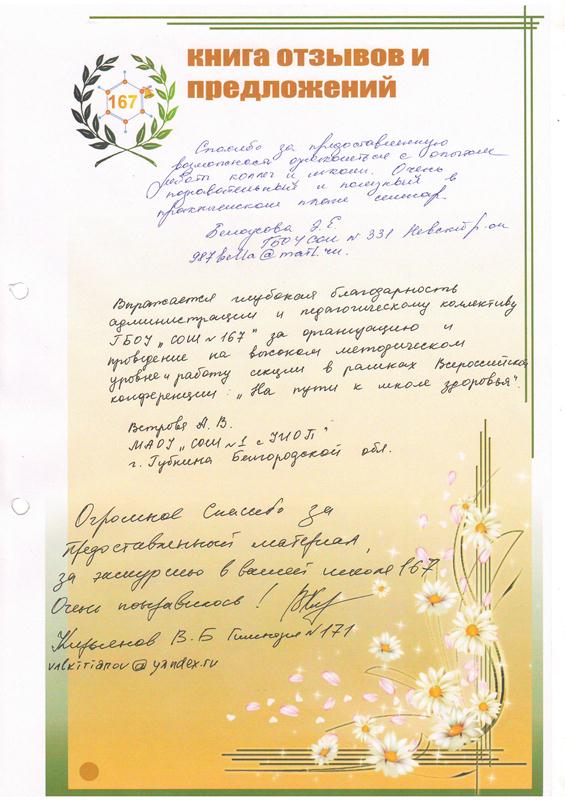 книга отзывов и
предложений
167
Спасибо за предоставленную
возможность ознакомиться с опытом
работы коллег и школы. Очень
познавательный и полезный в
практическом плане семинар.
Белоусова Э. Е.
ГБОУ СОШ № 331 Невский р-он
987bella@mail.ru.
Выражается глубокая благодарность
администрации и педагогическому коллективу
ГБОУ „СОШ № 167" за организацию и
проведение на высоком методическом
уровне и работу секции в рамках Всероссийской
конференции: „На пути к школе здоровья".
А. В.
МАОУ „СОШ №1 с УИОП"
г. Губкина Белгородской обл.
Огромное Спасибо за
предоставленный материал,
за экскурсию в вашей школе 167
Очень понравилось!
Кирьянов В. Б Гимназия №171
valkirianov@yandex.ru